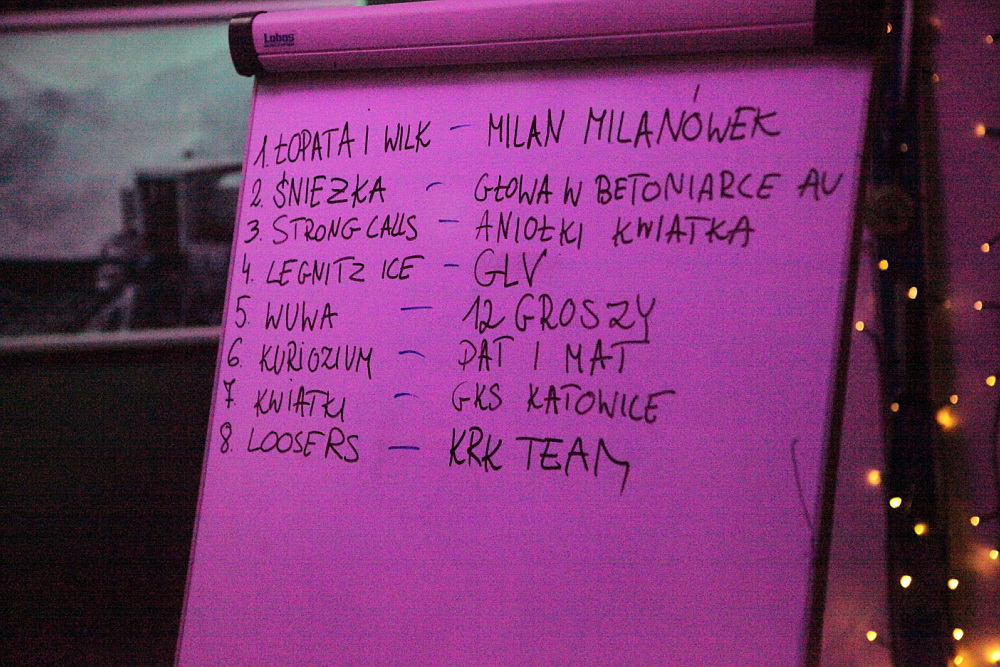 Lobos
1. ŁOPATA I WILK – MILAN MILANÓWEK
2. ŚNIEZKA – GŁOWA W BETONIARCE AU
3. STRONG CALLS – ANIOŁKI KWIATKA
4. LEGNITZ ICE – GLV
5. WUWA – 12 GROSZY
6. KURIOZIUM – PAT I MAT
7. KWIATKI – GKS KATOWICE
8. LOOSERS – KRK TEAM